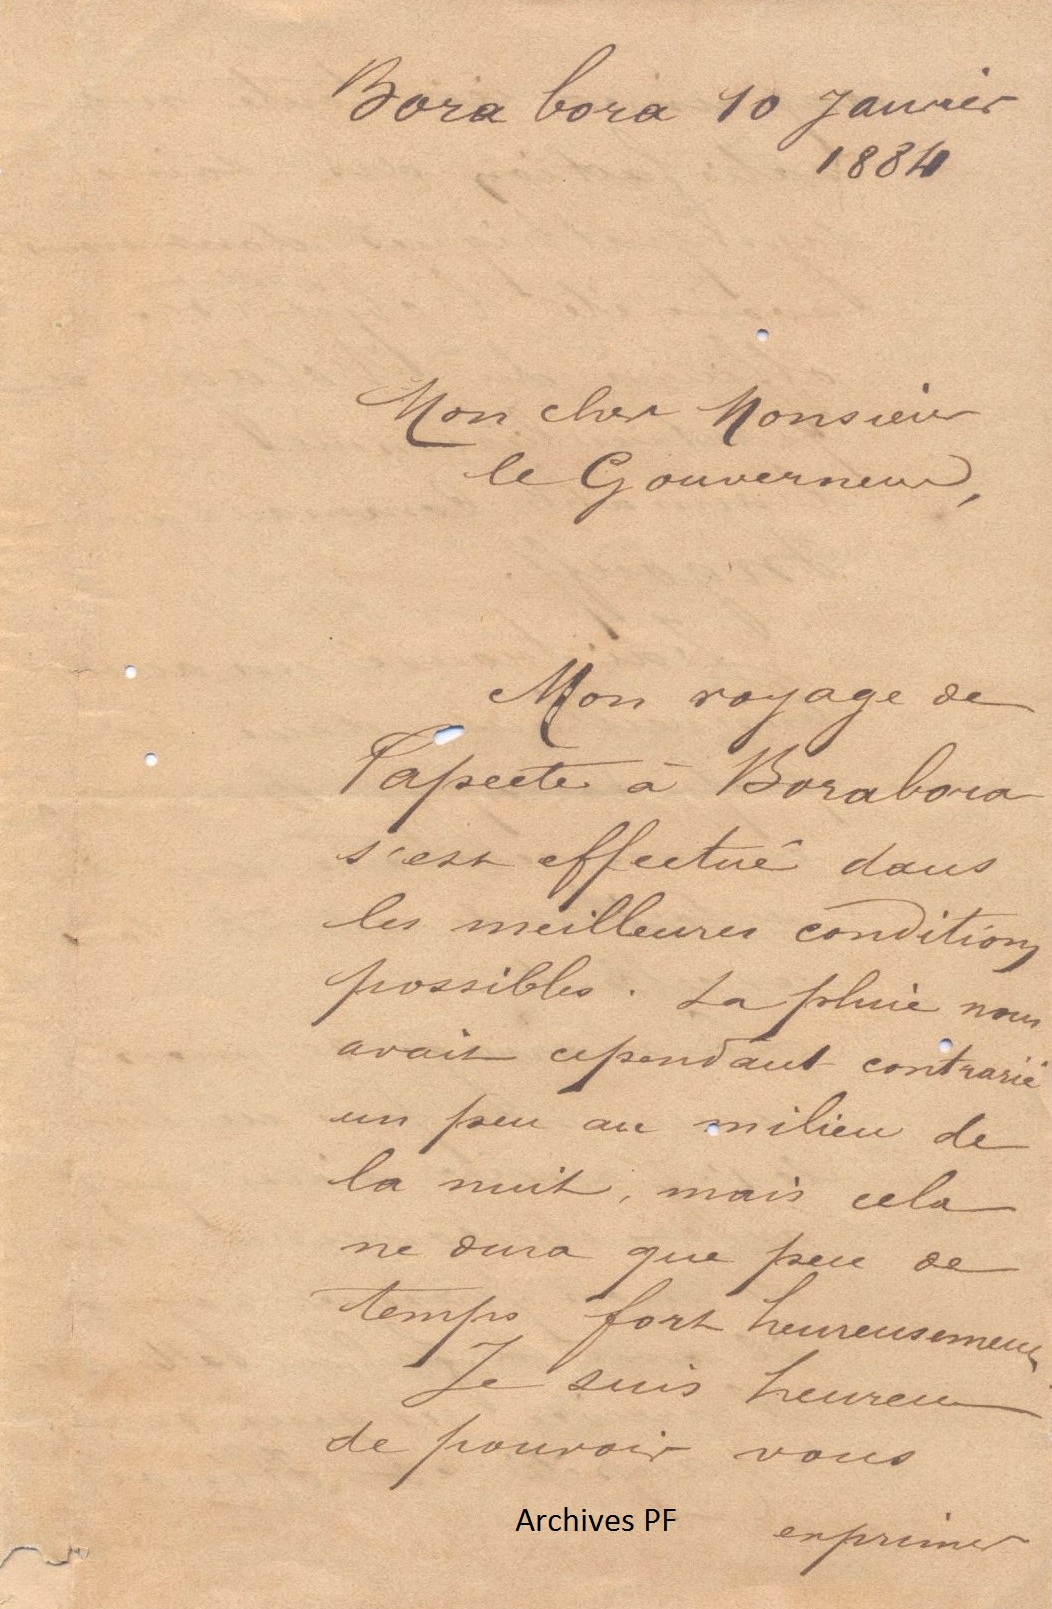 Bora bora 10 Janvier
1884
Mon cher Monsieur
le Gouverneur,
Mon voyage de
Papeete à Borabora
s'est effectué dans
les meilleures conditions
possibles. La pluie nous
avait cependant contrarié
un peu au milieu de
la nuit, mais cela
ne dura que peu de
temps fort heureusement
Je suis heureux
de pouvoir vous
exprimer
Archives PF